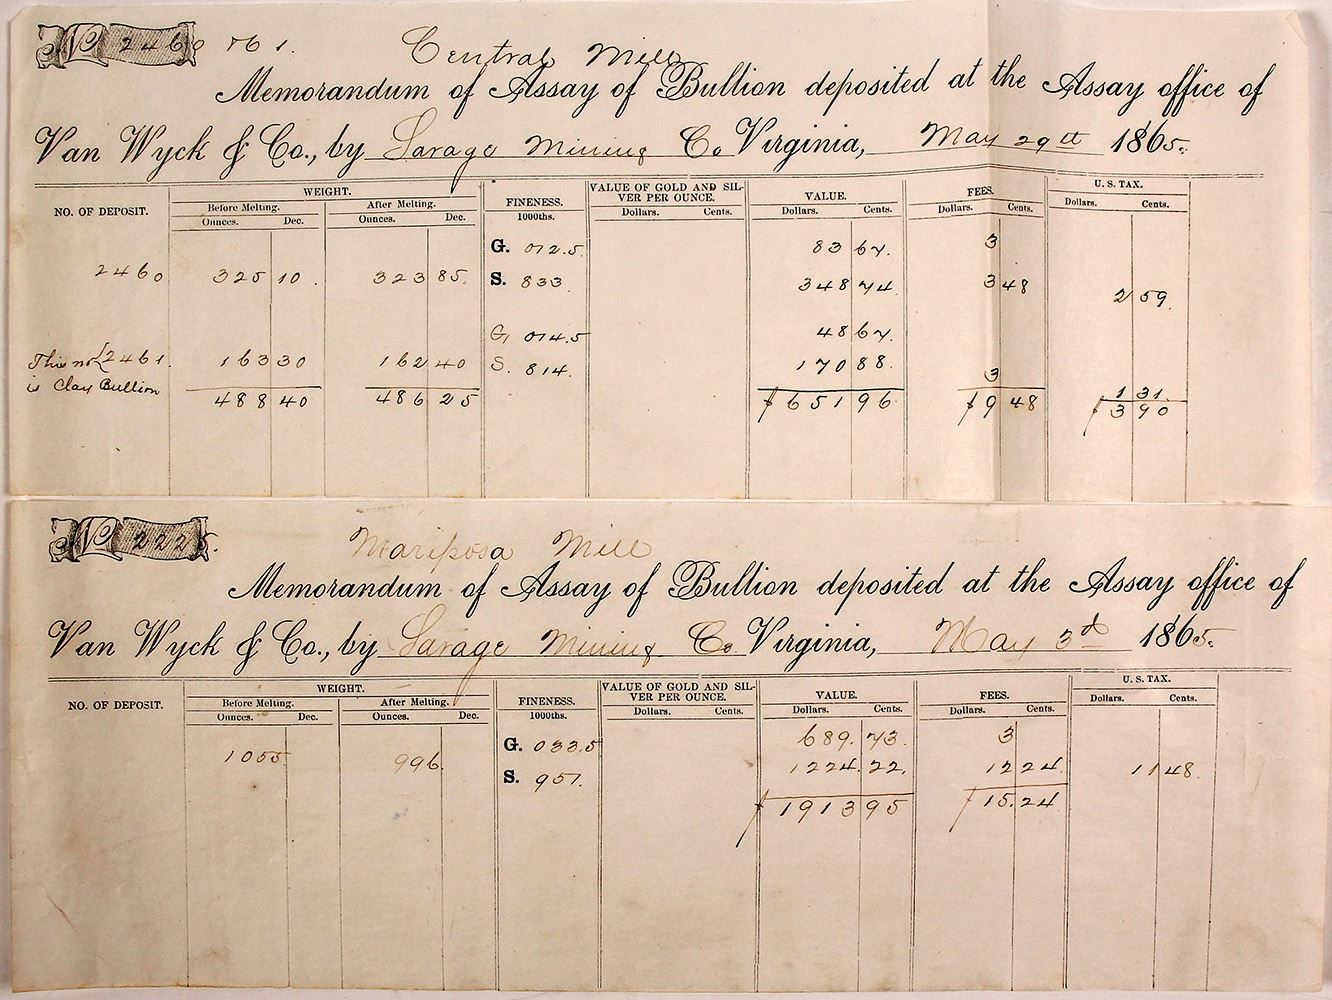 No 2460 & 61. Central Mill
Memorandum of Assay of Bullion deposited at the Assay office of
Van Wyck & Co., by Savage Mining Co Virginia, May 29th 1865.
NO. OF DEPOSIT. WEIGHT. FINENESS. VALUE OF GOLD AND SILVER PER OUNCE. VALUE. FEES. U. S. TAX.
Before Melting. After Melting. 1000ths. Dollars. Cents. Dollars. Cents. Dollars. Cents. Dollars. Cents.
Ounces. Dec. Ounces. Dec.
G. 012.5 83 67. 3
2460 325 10. 323 85. S. 833. 348 74. 3 48 2 59.
G, 014.5 48 67.
This no {2461. 163 30 162 40 S. 814. 170 88. 3
is Clay Bullion 488 40 486 25 $651 96 $9 48 1 31.
$3 90
No 2225. Mariposa Mill
Memorandum of Assay of Bullion deposited at the Assay office of
Van Wyck & Co., by Savage Mining Co Virginia, May 3d 1865.
NO. OF DEPOSIT. WEIGHT. FINENESS. VALUE OF GOLD AND SILVER PER OUNCE. VALUE. FEES. U. S. TAX.
Before Melting. After Melting. 1000ths. Dollars. Cents. Dollars. Cents. Dollars. Cents. Dollars. Cents.
Ounces. Dec. Ounces. Dec.
G. 033.5 689. 73. 3
1055 996. S. 951. 1224. 22. 12 24 11 48.
$1913 95 $15. 24